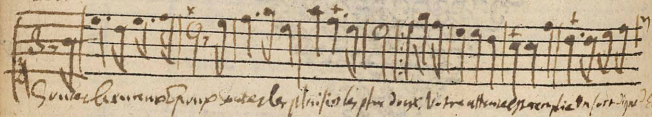 Soyez heureux Epoux goutez les plaisirs les plus doux, Votre attente est remplie Un sort digne